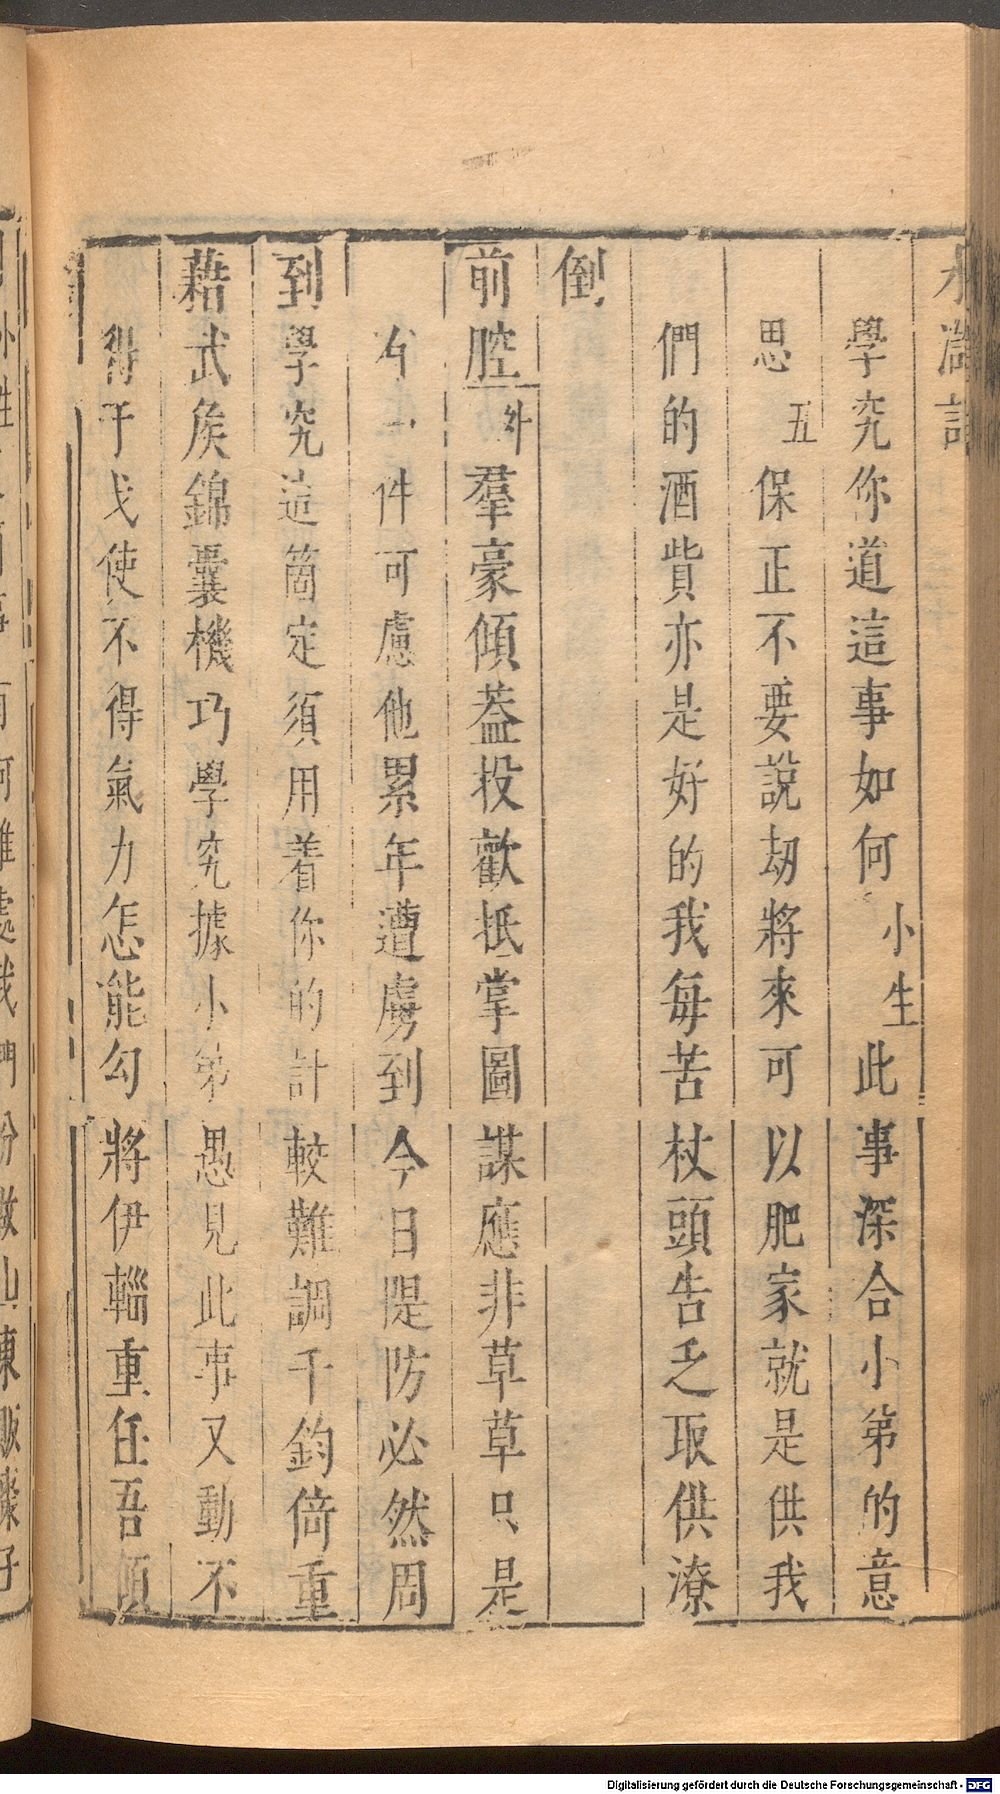 水滸記
學究你道這事如何小生此事深合小弟的意
思五保正不要說刼將來可以肥家就是供我
們的酒貲亦是好的我每苦杖頭告乏取供潦
倒
前腔外羣豪傾葢投歡抵掌圖謀應非草草只是
有一件可慮他累年遭虜到今日隄防必然周
到學究這箇定須用着你的計較難調千鈞倚重
藉武矦錦囊機巧學究據小弟愚見此事又動不
得干戈使不得氣力怎能勾將伊輜重任吾傾
Digitalisierung gefördert durch die Deutsche Forschungsgemeinschaft - DFG